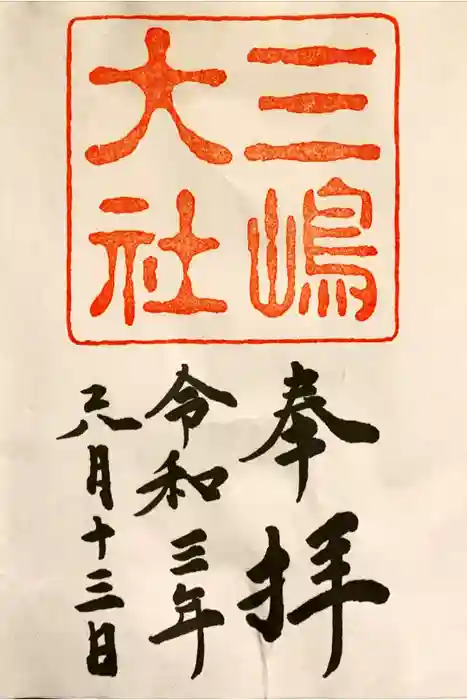 三嶋
大社
奉拝
令和三年
月十三日